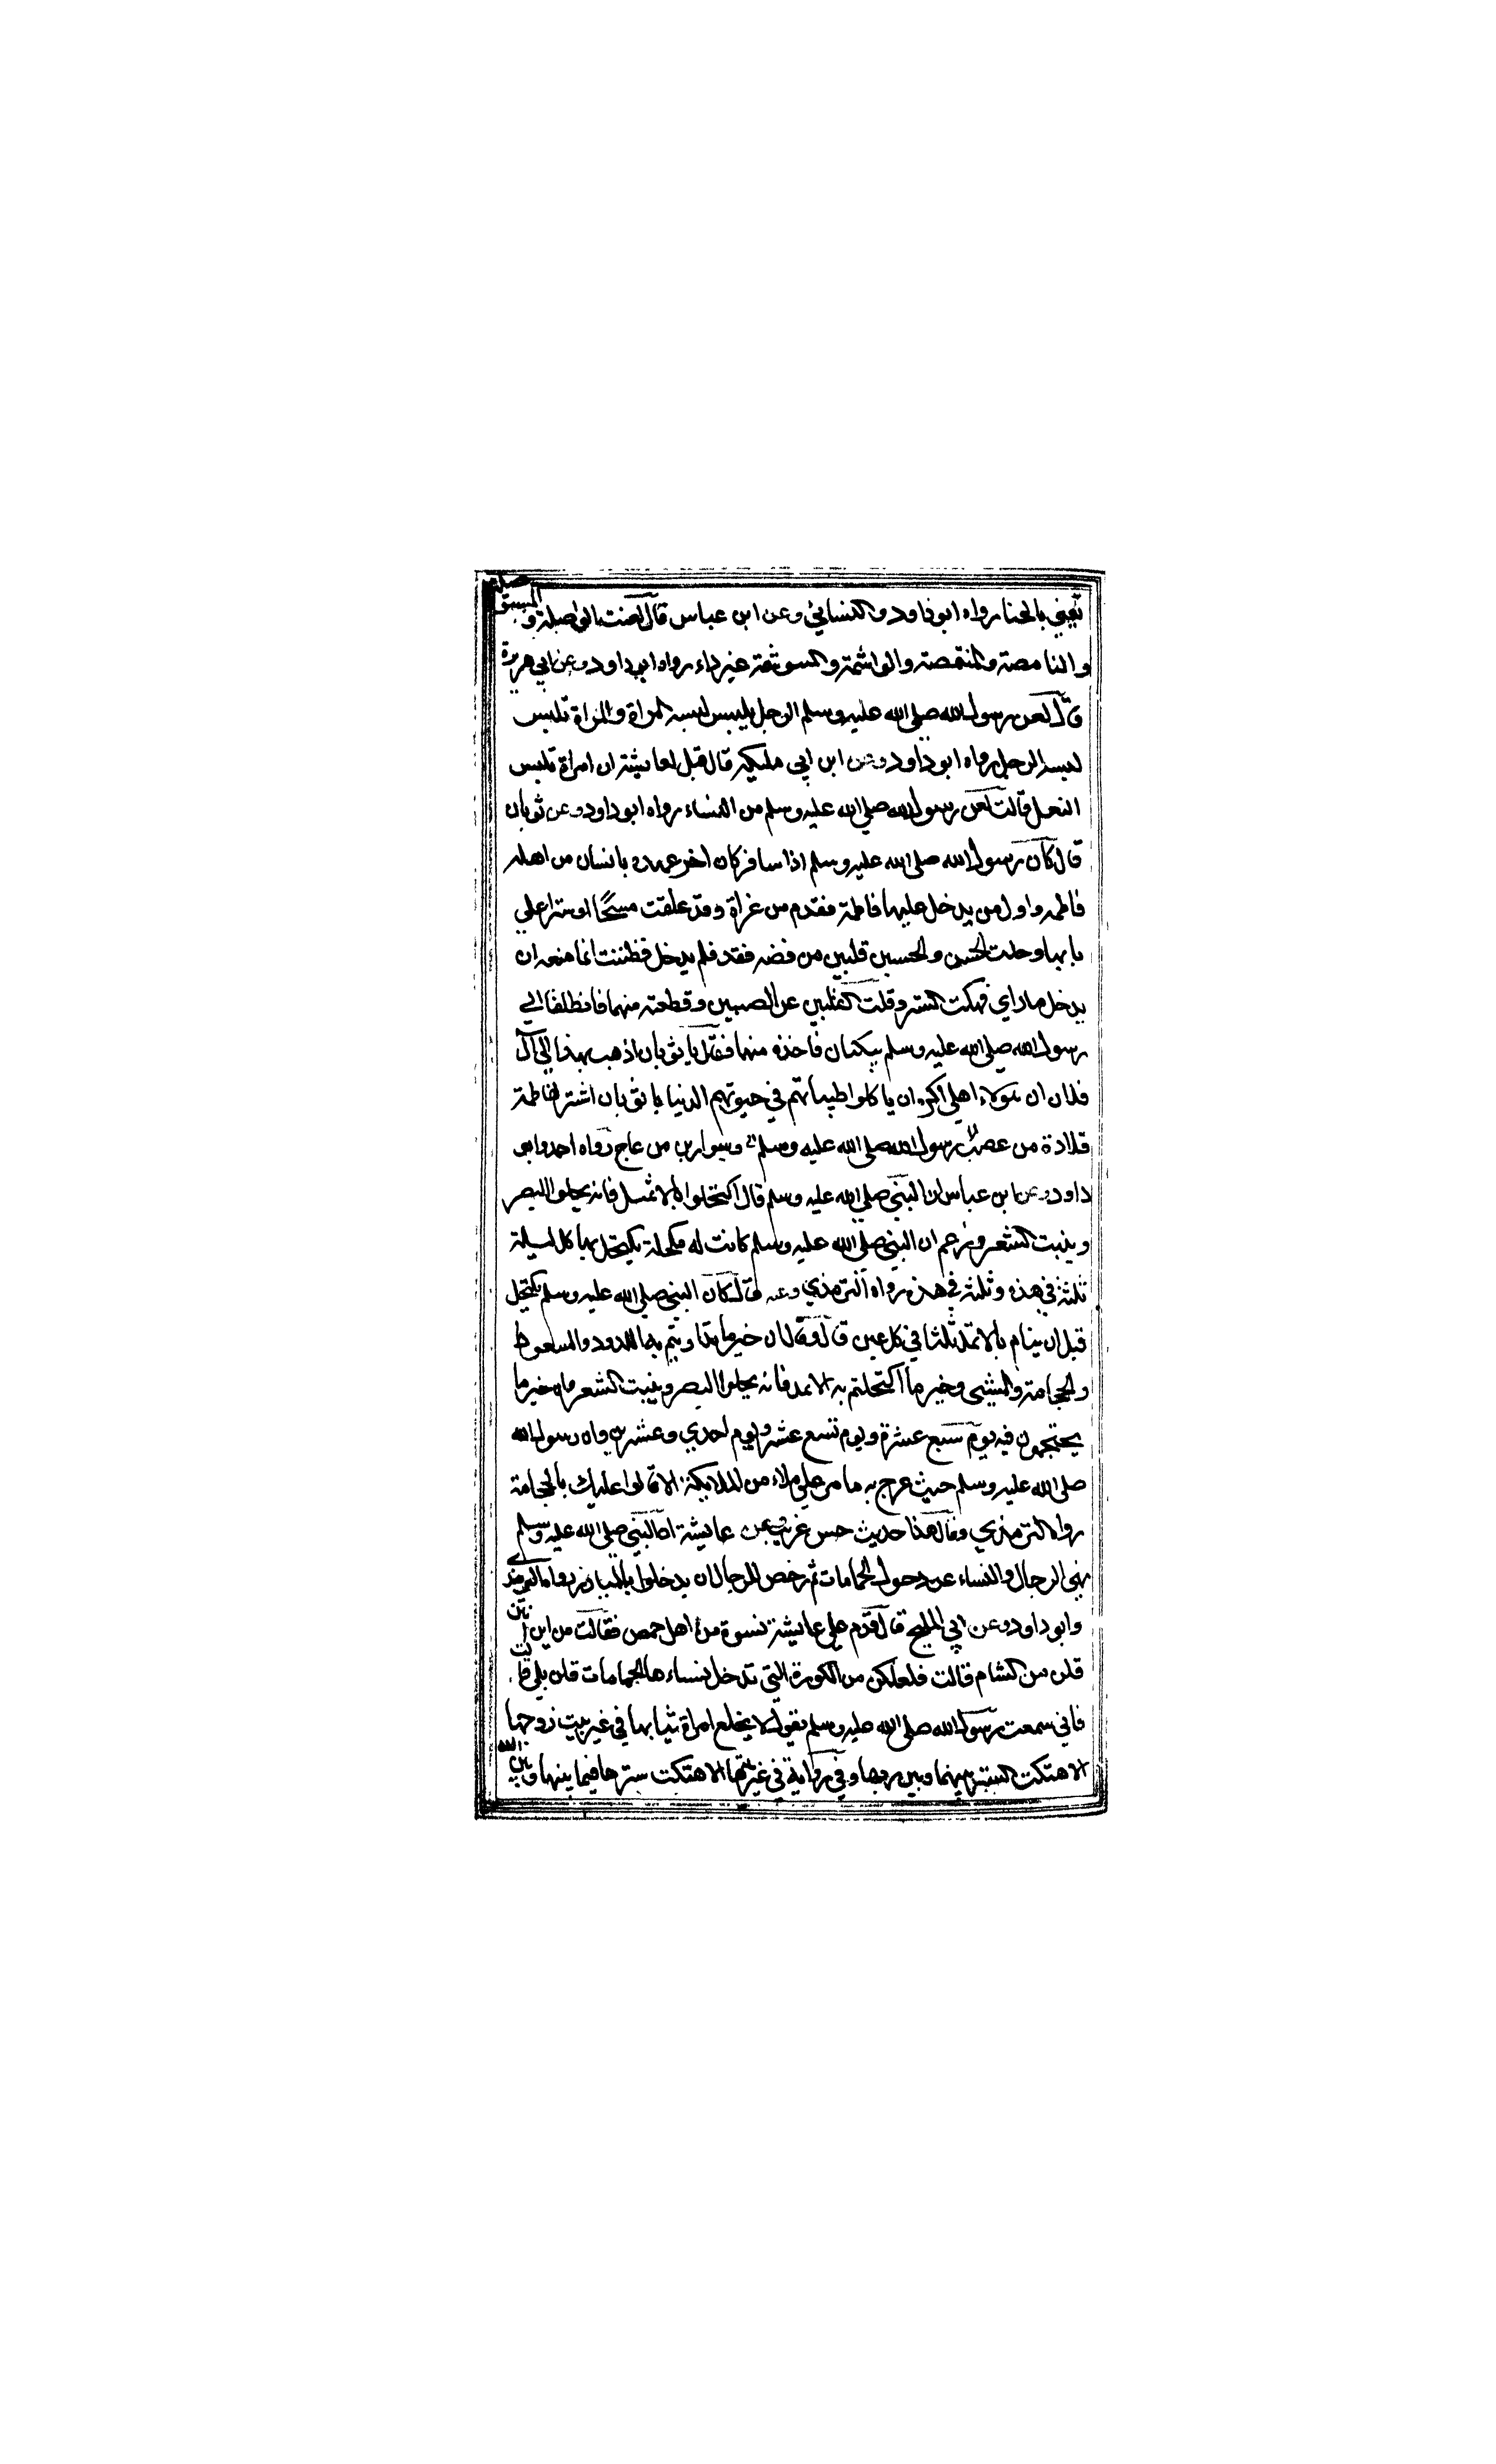 يعني بالحنا رواه ابو داود والنسائي وعن ابن عباس قال لعنت الواصلة و المستوصلة
والنامصة والمتنمصة والواشمة والمستوشمة من غير داء رواه ابو داود وعن ابي هريرة
قال لعن رسول الله صلي الله عليه وسلم الرجل يلبس لبسة المراة والمراة تلبس
لبسة الرجل رواه ابو داود وعن ابن ابي مليكه قال قيل لعائشة ان امراة تلبس
النعل قالت لعن رسول الله صلي الله عليه وسلم من النساء رواه ابو داود وعن ثوبان
قال كان رسول الله صلي الله عليه وسلم اذا سافر كان اخر عهده بانسان من اهله
فاطمه واول من يدخل عليها فاطمة فقدم من غزاة وقد علقت مسحًا او سترا علي
بابها وحلت الحسن والحسين قلبين من فضه فقدم فلم يدخل فظننت انما منعه ان
يدخل ما راي فهتكت الستر وقلت القلبين عن الصبيين وقطعته منهما فانطلقا الي
رسول الله صلي الله عليه وسلم يبكيان فاخذه منهما فقال يا ثوبان اذهب بهذا الي آل
فلان ان هولاء اهلي اكره ان ياكلوا طيباتهم في حيوتهم الدنيا يا ثوبان اشتر لفاطمة
قلادة من عصب رسول الله صلي الله عليه وسلم وسوارين من عاج رواه احمد وابو
داود وعن ابن عباس ان النبي صلي الله عليه وسلم قال اكتحلوا بالاثمد فانه يجلوا البصر
وينبت الشعر وزعم ان النبي صلي الله عليه وسلم كانت له مكحلة يكتحل بها كل ليلة
ثلثة في هذه وثلثة في هذه رواه الترمذي وعنه قال كان النبي صلي الله عليه وسلم يكتحل
قبل ان ينام بالاثمد ثلثا في كل عين قال وقال ان خير ما تداويتم به اللدود والسعوط
والحجامة والمشي وخير ما اكتحلتم به الاثمد فانه يجلوا البصر وينبت الشعر وان خير ما
يحتجمون فيه يوم سبع عشرة ويوم تسع عشر ويوم احدي وعشرين وان رسول الله
صلي الله عليه وسلم حيث عرج به ما مر علي ملاء من الملايكة الا قالوا عليك بالحجامة
رواه الترمذي وقال هذا حديث حسن غريب وعن عايشة ان النبي صلي الله عليه وسلم
نهي الرجال والنساء عن دخول الحمامات ثم رخص للرجال ان يدخلوا بالميازر رواه الترمذي
وابو داود وعن ابي المليح قال قدم علي عايشة نسوة من اهل حمص فقالت من اين انتن
قلن من الشام قالت فلعلكن من الكورة التي تدخل نساءها الحمامات قلن بلي قالت
فاني سمعت رسول الله صلي الله عليه وسلم يقول لا يخلع امراة ثيابها في غير بيت زوجها
الا هتكت الستر بينها وبين ربها وفي رواية في غير بيتها الا هتكت سترها فيما بينها وبين الله